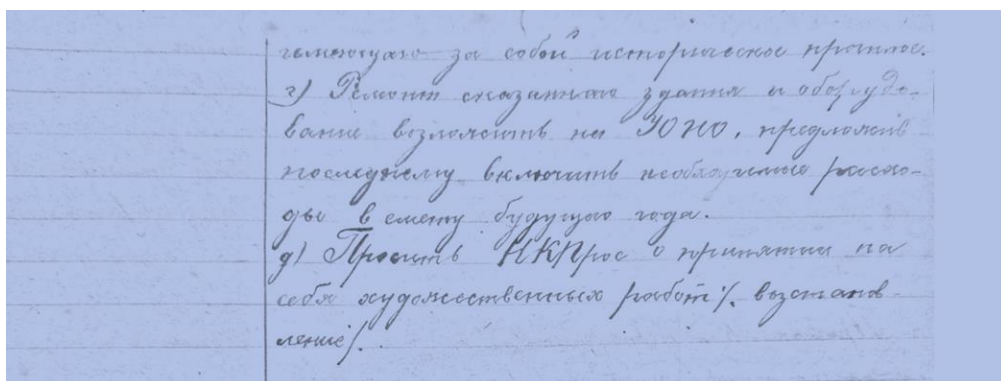 имеющаго за собой историческое прошлое.
г) Ремонт сказаннаго здания и оборудо-
вание возложить на УОНО, предложив
последнему включить необходимые расхо-
ды в смету будущаго года.
д) Просить НКПрос о принятии на
себя художественных работ /. возстанов-
ление/.